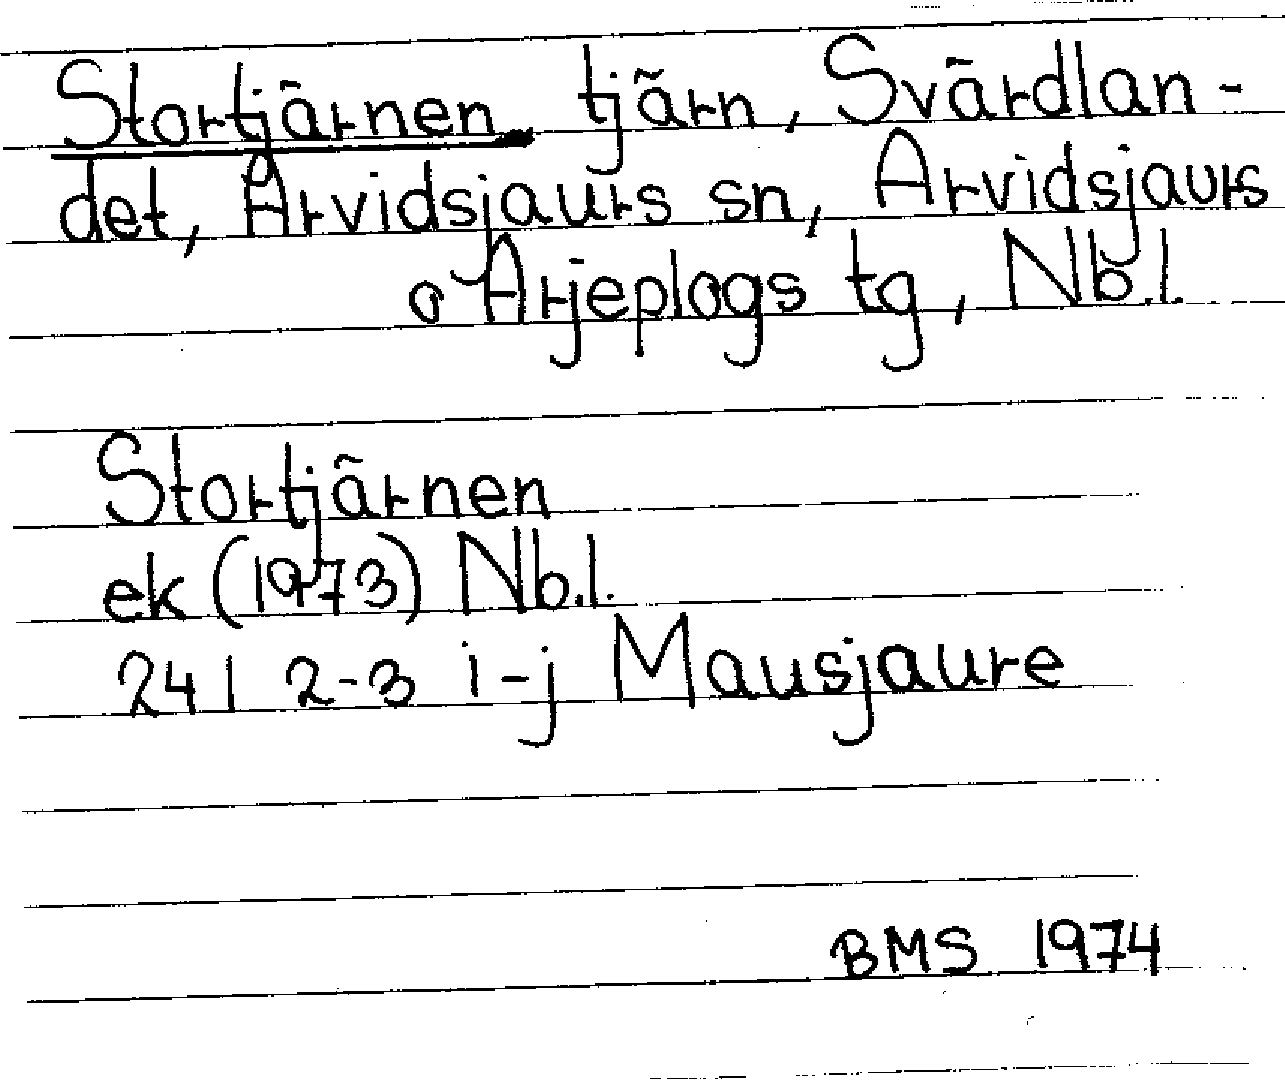 Stortjärnen tjärn, Svärdlan-
det, Arvidsjaurs sn, Arvidsjaurs
o Arjeplogs tg, Nb.l.
Stortjärnen
ek (1973) Nb.l.
24 I 2-3 i-j Mausjaure
BMS 1974